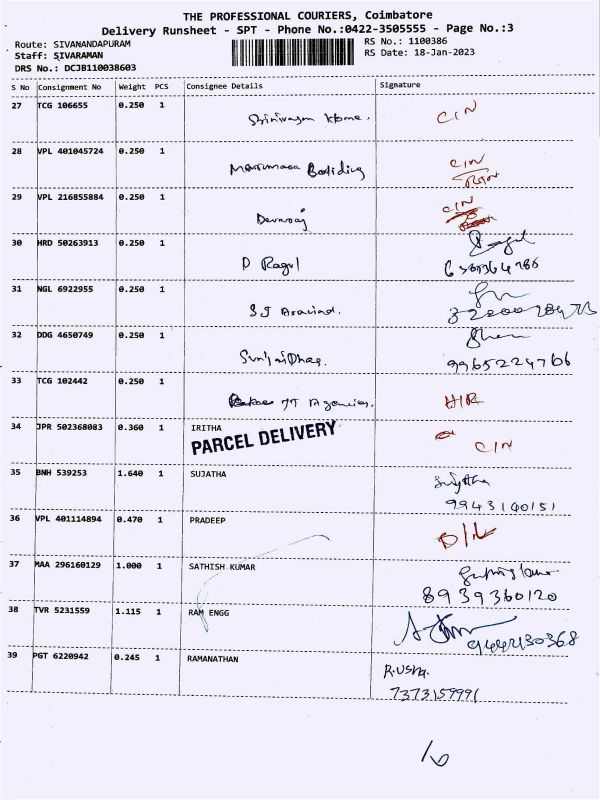 THE PROFESSIONAL COURIERS, Coimbatore
Delivery Runsheet - SPT - Phone No.:0422-3505555 - Page No.:3
Route: SIVANANDAPURAM RS No.: 1100386
Staff: SIVARAMAN RS Date: 18-Jan-2023
DRS No.: DCJB110038603
S No Consignment No Weight PCS Consignee Details Signature
27 TCG 106655 0.250 1 Srinivasan Home. CIN
28 VPL 401045724 0.250 1 CIN
29 VPL 216855884 0.250 1 Devaraj CIN
30 HRD 50263913 0.250 1 D Ragul
31 NGL 6922955 0.250 1 S J Aravind.
32 DDG 4650749 0.250 1 9965224766
33 TCG 102442 0.250 1 JT Agencies.
34 JPR 502368083 0.360 1 IRITHA CIN
PARCEL DELIVERY
35 BNH 539253 1.640 1 SUJATHA Sujatha
9943140151
36 VPL 401114894 0.470 1 PRADEEP D/L
37 MAA 296160129 1.000 1 SATHISH KUMAR
8939360120
38 TVR 5231559 1.115 1 RAM ENGG 9442130368
39 PGT 6220942 0.245 1 RAMANATHAN R.Usha.
7373159991
16